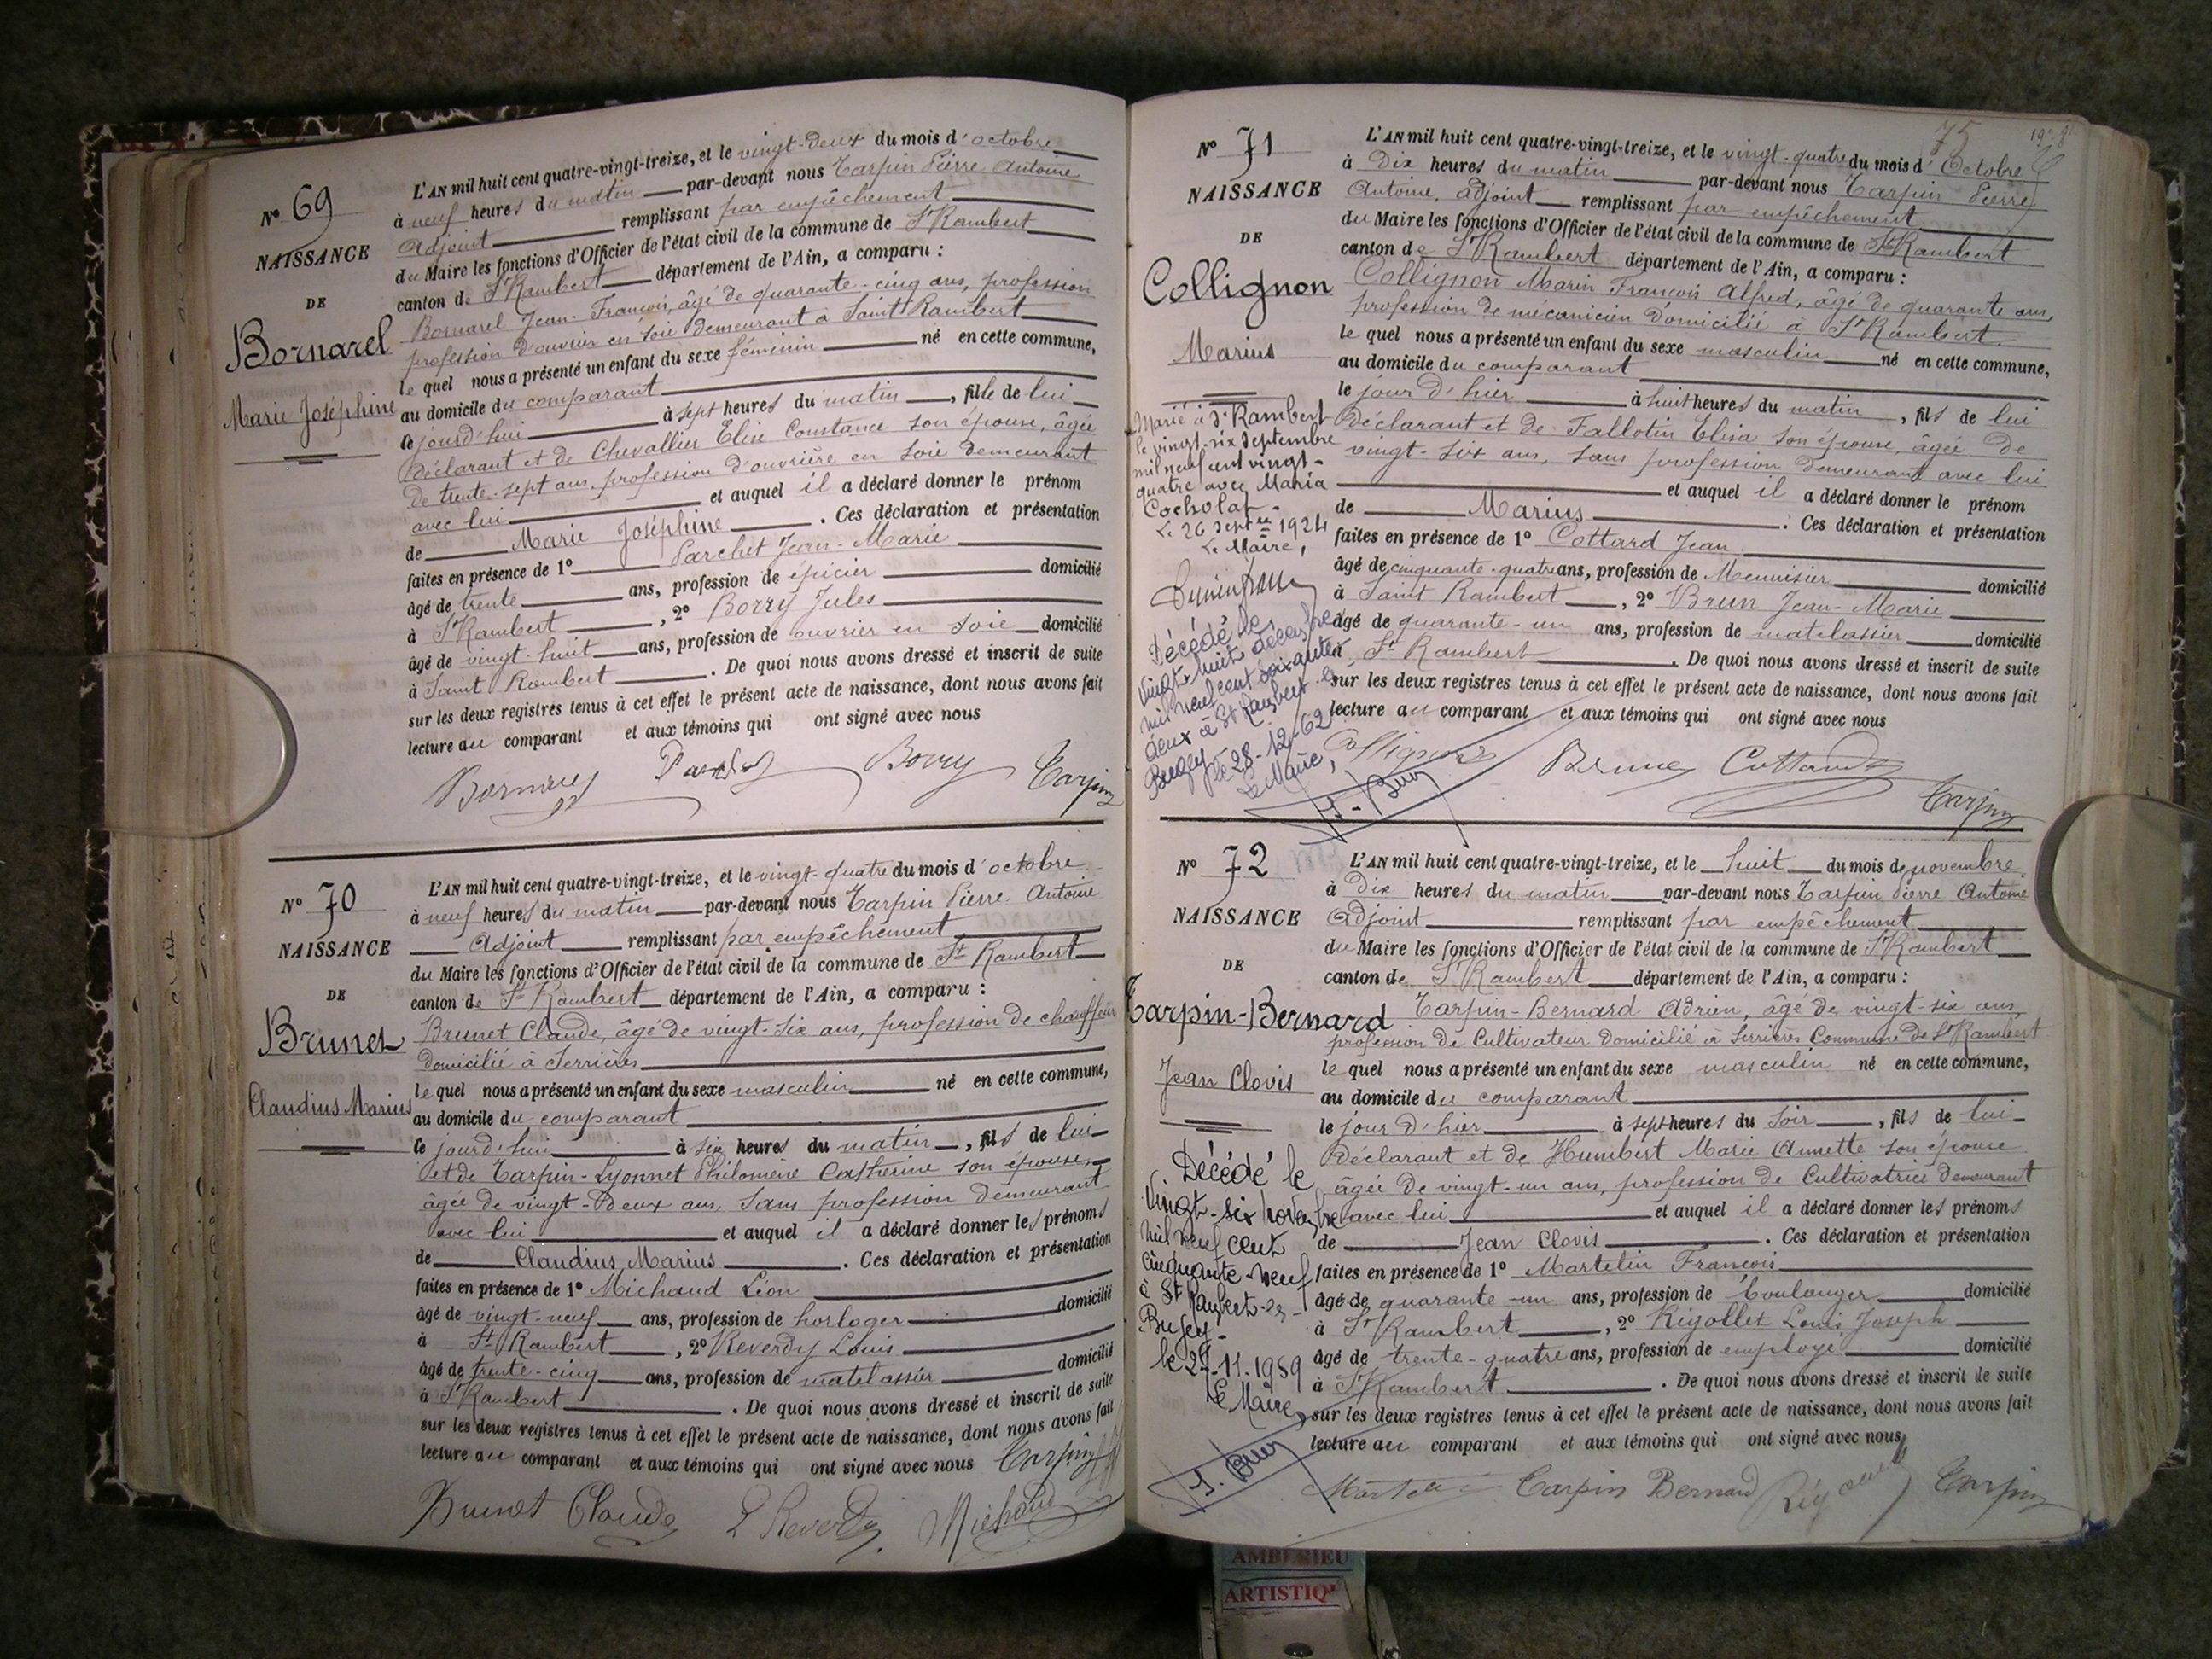 N° 69
NAISSANCE
DE
Bornarel
Marie Joséphine
L'AN mil huit cent quatre-vingt-treize, et le vingt-deux du mois d'octobre
à neuf heures du matin par-devant nous Tarpin Pierre Antoine
Adjoint remplissant par empêchement
du Maire les fonctions d'Officier de l'état civil de la commune de St Rambert
canton de St Rambert département de l'Ain, a comparu :
Bornarel Jean-François, âgé de quarante-cinq ans, profession
profession d'ouvrier en soie demeurant à Saint Rambert
le quel nous a présenté un enfant du sexe féminin né en cette commune,
au domicile du comparant
ce jourd'hui à sept heures du matin, fille de lui
déclarant et de Chevallier Elise Constance son épouse, âgée
de trente-sept ans, profession d'ouvrière en soie demeurant
avec lui et auquel il a déclaré donner le prénom
de Marie Joséphine. Ces déclaration et présentation
faites en présence de 1° Parchet Jean-Marie
âgé de trente ans, profession de épicier domicilié
à St Rambert, 2° Borry Jules
âgé de vingt-huit ans, profession de ouvrier en soie domicilié
à Saint Rambert. De quoi nous avons dressé et inscrit de suite
sur les deux registres tenus à cet effet le présent acte de naissance, dont nous avons fait
lecture au comparant et aux témoins qui ont signé avec nous
Borry Tarpin
N° 70
NAISSANCE
DE
Brunet
Claudius Marius
L'AN mil huit cent quatre-vingt-treize, et le vingt-quatre du mois d'octobre
à neuf heures du matin par-devant nous Tarpin Pierre Antoine
Adjoint remplissant par empêchement
du Maire les fonctions d'Officier de l'état civil de la commune de St Rambert
canton de St Rambert département de l'Ain, a comparu :
Brunet Claude, âgé de vingt-six ans, profession de chauffeur
domicilié à Serrières
le quel nous a présenté un enfant du sexe masculin né en cette commune,
au domicile du comparant
ce jourd'hui à six heures du matin, fils de lui
et de Tarpin-Lyonnet Philomène Catherine son épouse,
âgée de vingt-deux ans sans profession demeurant
avec lui et auquel il a déclaré donner les prénoms
de Claudius Marius. Ces déclaration et présentation
faites en présence de 1° Michaud Léon
âgé de vingt-neuf ans, profession de horloger domicilié
à St Rambert, 2° Reverdy Louis
âgé de trente-cinq ans, profession de matelassier domicilié
à St Rambert. De quoi nous avons dressé et inscrit de suite
sur les deux registres tenus à cet effet le présent acte de naissance, dont nous avons fait
lecture au comparant et aux témoins qui ont signé avec nous Tarpin
Brunet Claude L Reverdy Michaud
75
N° 71
NAISSANCE
DE
Collignon
Marius
L'AN mil huit cent quatre-vingt-treize, et le vingt-quatre du mois d'Octobre
à Dix heures du matin par-devant nous Tarpin Pierre
Antoine, adjoint remplissant par empêchement
du Maire les fonctions d'Officier de l'état civil de la commune de St Rambert
canton de St Rambert département de l'Ain, a comparu :
Collignon Marin François Alfred, âgé de quarante ans,
profession de mécanicien domicilié à St Rambert
le quel nous a présenté un enfant du sexe masculin né en cette commune,
au domicile du comparant
le jour d'hier à huit heures du matin, fils de lui
déclarant et de Fallotin Elisa son épouse, âgée de
vingt-six ans, sans profession demeurant avec lui
et auquel il a déclaré donner le prénom
de Marius. Ces déclaration et présentation
faites en présence de 1° Cottard Jean
âgé de cinquante-quatre ans, profession de Menuisier domicilié
à Saint Rambert, 2° Brun Jean-Marie
âgé de quarante-un ans, profession de matelassier domicilié
à St Rambert. De quoi nous avons dressé et inscrit de suite
sur les deux registres tenus à cet effet le présent acte de naissance, dont nous avons fait
lecture au comparant et aux témoins qui ont signé avec nous
Collignon Brun Cottard Tarpin
Marié à St Rambert
le vingt-six Septembre
mil neuf cent vingt-
quatre avec Maria
Le 26 Septbre 1924
Le Maire,
Décédé le
vingt-huit décembre
mil neuf cent soixante
deux à St Rambert en
Bugey le 28-12-62
Le Maire,
N° 72
NAISSANCE
DE
Tarpin-Bernard
Jean Clovis
L'AN mil huit cent quatre-vingt-treize, et le huit du mois de novembre
à Dix heures du matin par-devant nous Tarpin Pierre Antoine
Adjoint remplissant par empêchement
du Maire les fonctions d'Officier de l'état civil de la commune de St Rambert
canton de St Rambert département de l'Ain, a comparu :
Tarpin-Bernard Adrien, âgé de vingt-six ans,
profession de Cultivateur domicilié à Serrières Commune de St Rambert
le quel nous a présenté un enfant du sexe masculin né en cette commune,
au domicile du comparant
le jour d'hier à sept heures du soir, fils de lui
déclarant et de Humbert Marie Annette son épouse
âgée de vingt-un ans, profession de Cultivatrice demeurant
avec lui et auquel il a déclaré donner les prénoms
de Jean Clovis. Ces déclaration et présentation
faites en présence de 1° Martelin François
âgé de quarante-un ans, profession de boulanger domicilié
à St Rambert, 2° Rigollet Louis Joseph
âgé de trente-quatre ans, profession de employé domicilié
à St Rambert. De quoi nous avons dressé et inscrit de suite
sur les deux registres tenus à cet effet le présent acte de naissance, dont nous avons fait
lecture au comparant et aux témoins qui ont signé avec nous
Tarpin Bernard Tarpin
Décédé le
vingt-six novembre
mil neuf cent
cinquante-neuf
à St Rambert-en-
Bugey-
le 27-11-1959
Le Maire,
AMBERIEU
ARTISTIQ